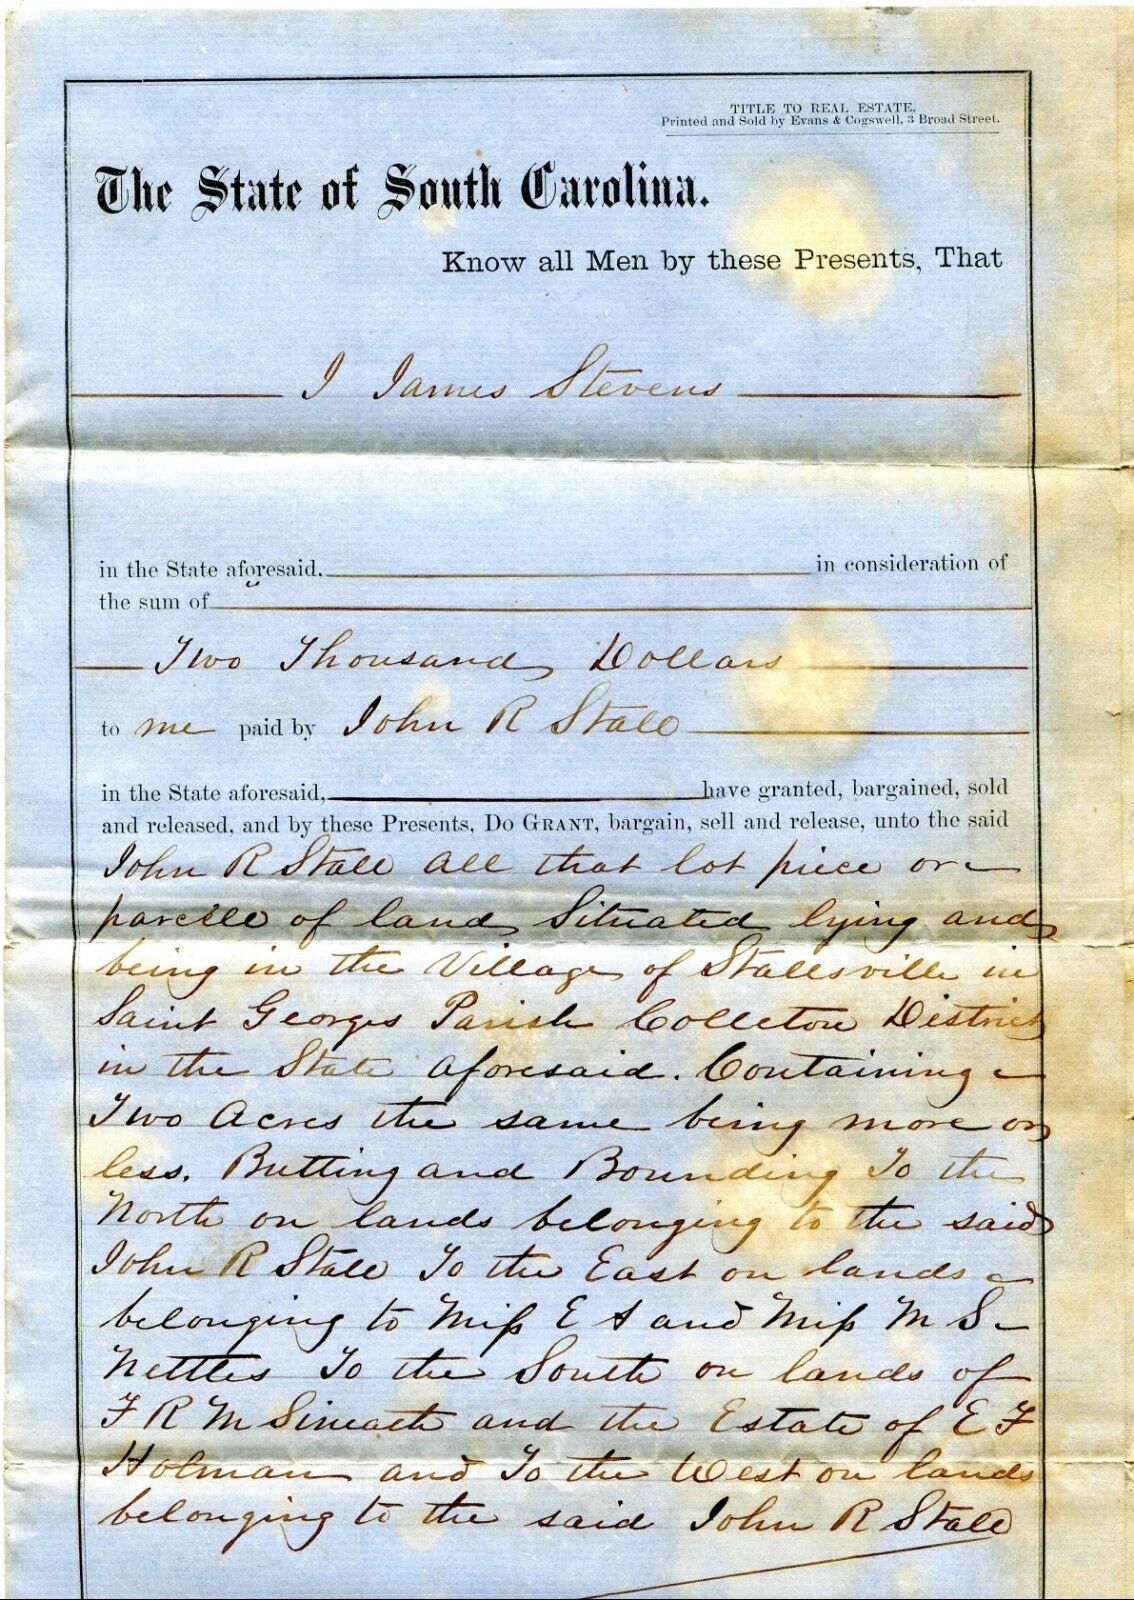 TITLE TO REAL ESTATE.
Printed and Sold by Evans & Cogswell, 3 Broad Street.
The State of South Carolina.
Know all Men by these Presents, That
I James Stevens
in the State aforesaid, in consideration of
the sum of
Two Thousand Dollars
to me paid by John R Stall
in the State aforesaid, have granted, bargained, sold
and released, and by these Presents, Do Grant, bargain, sell and release, unto the said
John R Stall all that lot piece or
parcele of land Situated lying and
being in the Village of Stallsville in
Saint Georges Parish Colleton District
in the State aforesaid. Containing
Two Acres the same being more or
less. Butting and Bounding To the
North on lands belonging to the said
John R Stall To the East on lands
belonging to Miss E A and Miss M S
Nettles To the South on lands of
F R M Sineath and the Estate of E F
Holman and To the West on lands
belonging to the said John R Stall